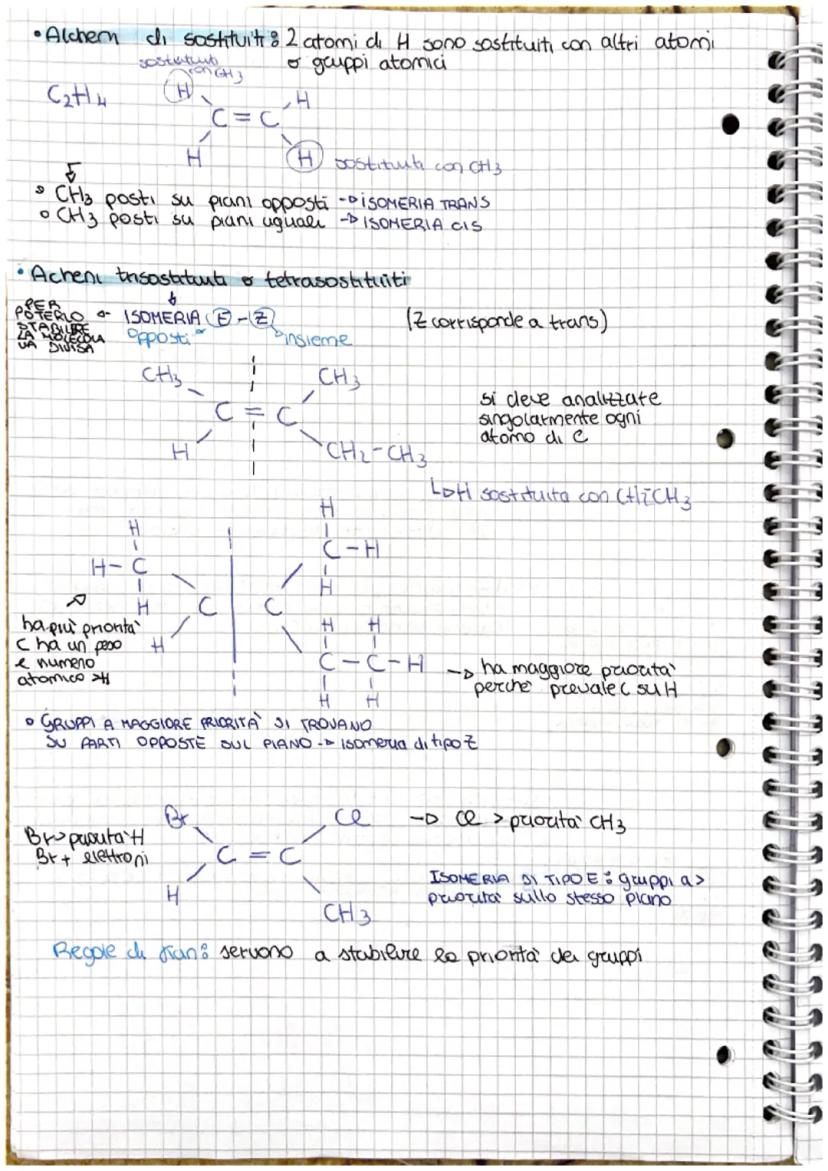 • Alcheni di sostituiti: 2 atomi di H sono sostituiti con altri atomi
o gruppi atomici
sostituiti
con CH3
C2H4
H H
C = C
H H sostituiti con CH3
° CH3 posti su piani opposti -> ISOMERIA TRANS
° CH3 posti su piani uguali -> ISOMERIA CIS
• Acheni trisostituiti o tetrasostituiti
PER
POTERLO
STABILIRE
LA MOLECOLA
VA DIVISA
ISOMERIA E-Z (Z corrisponde a trans)
opposti insieme
CH3 CH3
C = C
H CH2-CH3
si deve analizzare
singolarmente ogni
atomo di C
H sostituita con CH2CH3
H
H C-H
H-C H
H C C
H
H H
C-C-H
H H
ha più priorità
C ha un peso
e numero
atomico >H
-> ha maggiore priorità
perché prevale C su H
° GRUPPI A MAGGIORE PRIORITÀ SI TROVANO
SU PARTI OPPOSTE SUL PIANO -> isomeria di tipo Z
Br Cl -> Cl > priorità CH3
Br > priorità H
Br + elettroni
C = C
H CH3
ISOMERIA DI TIPO E: gruppi a >
priorità sullo stesso piano
Regole di : servono a stabilire la priorità dei gruppi